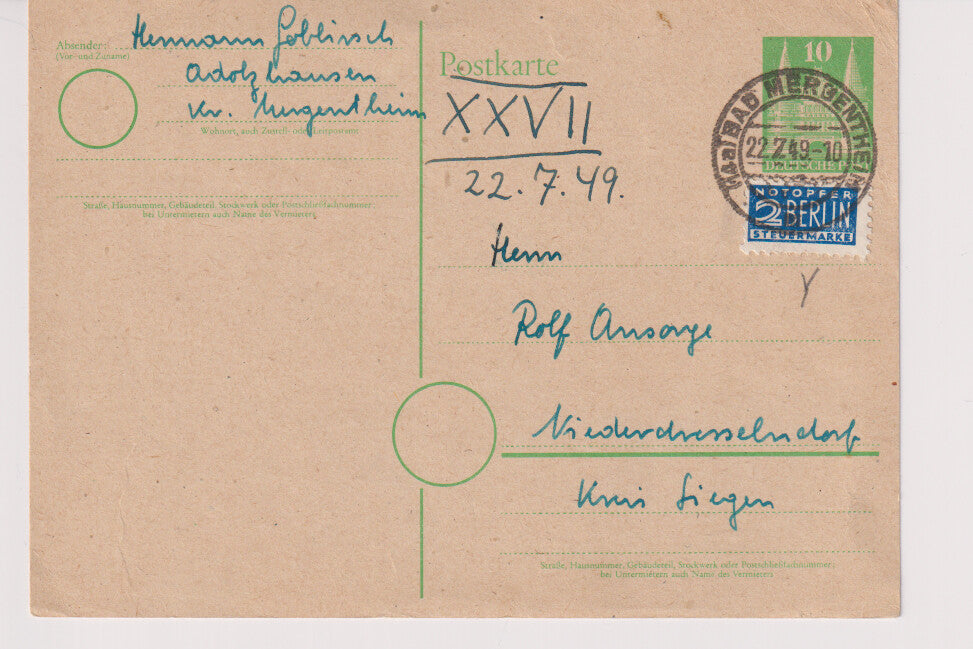 Absender:
(Vor- und Zuname)
Hermann Goblirsch
Adolzhausen
Kr. Mergentheim
Wohnort, auch Zustell- oder Leitpostamt
Straße, Hausnummer, Gebäudeteil, Stockwerk oder Postschließfachnummer;
bei Untermietern auch Name des Vermieters
Postkarte
XXVII
22.7.49.
10
DEUTSCHE P
(14a) BAD MERGENTHEIM
22.7.49-10
NOTOPFER
2 BERLIN
STEUERMARKE
Herrn
Rolf Ansorge
Niederdresselndorf
Kreis Siegen
Straße, Hausnummer, Gebäudeteil, Stockwerk oder Postschließfachnummer;
bei Untermietern auch Name des Vermieters